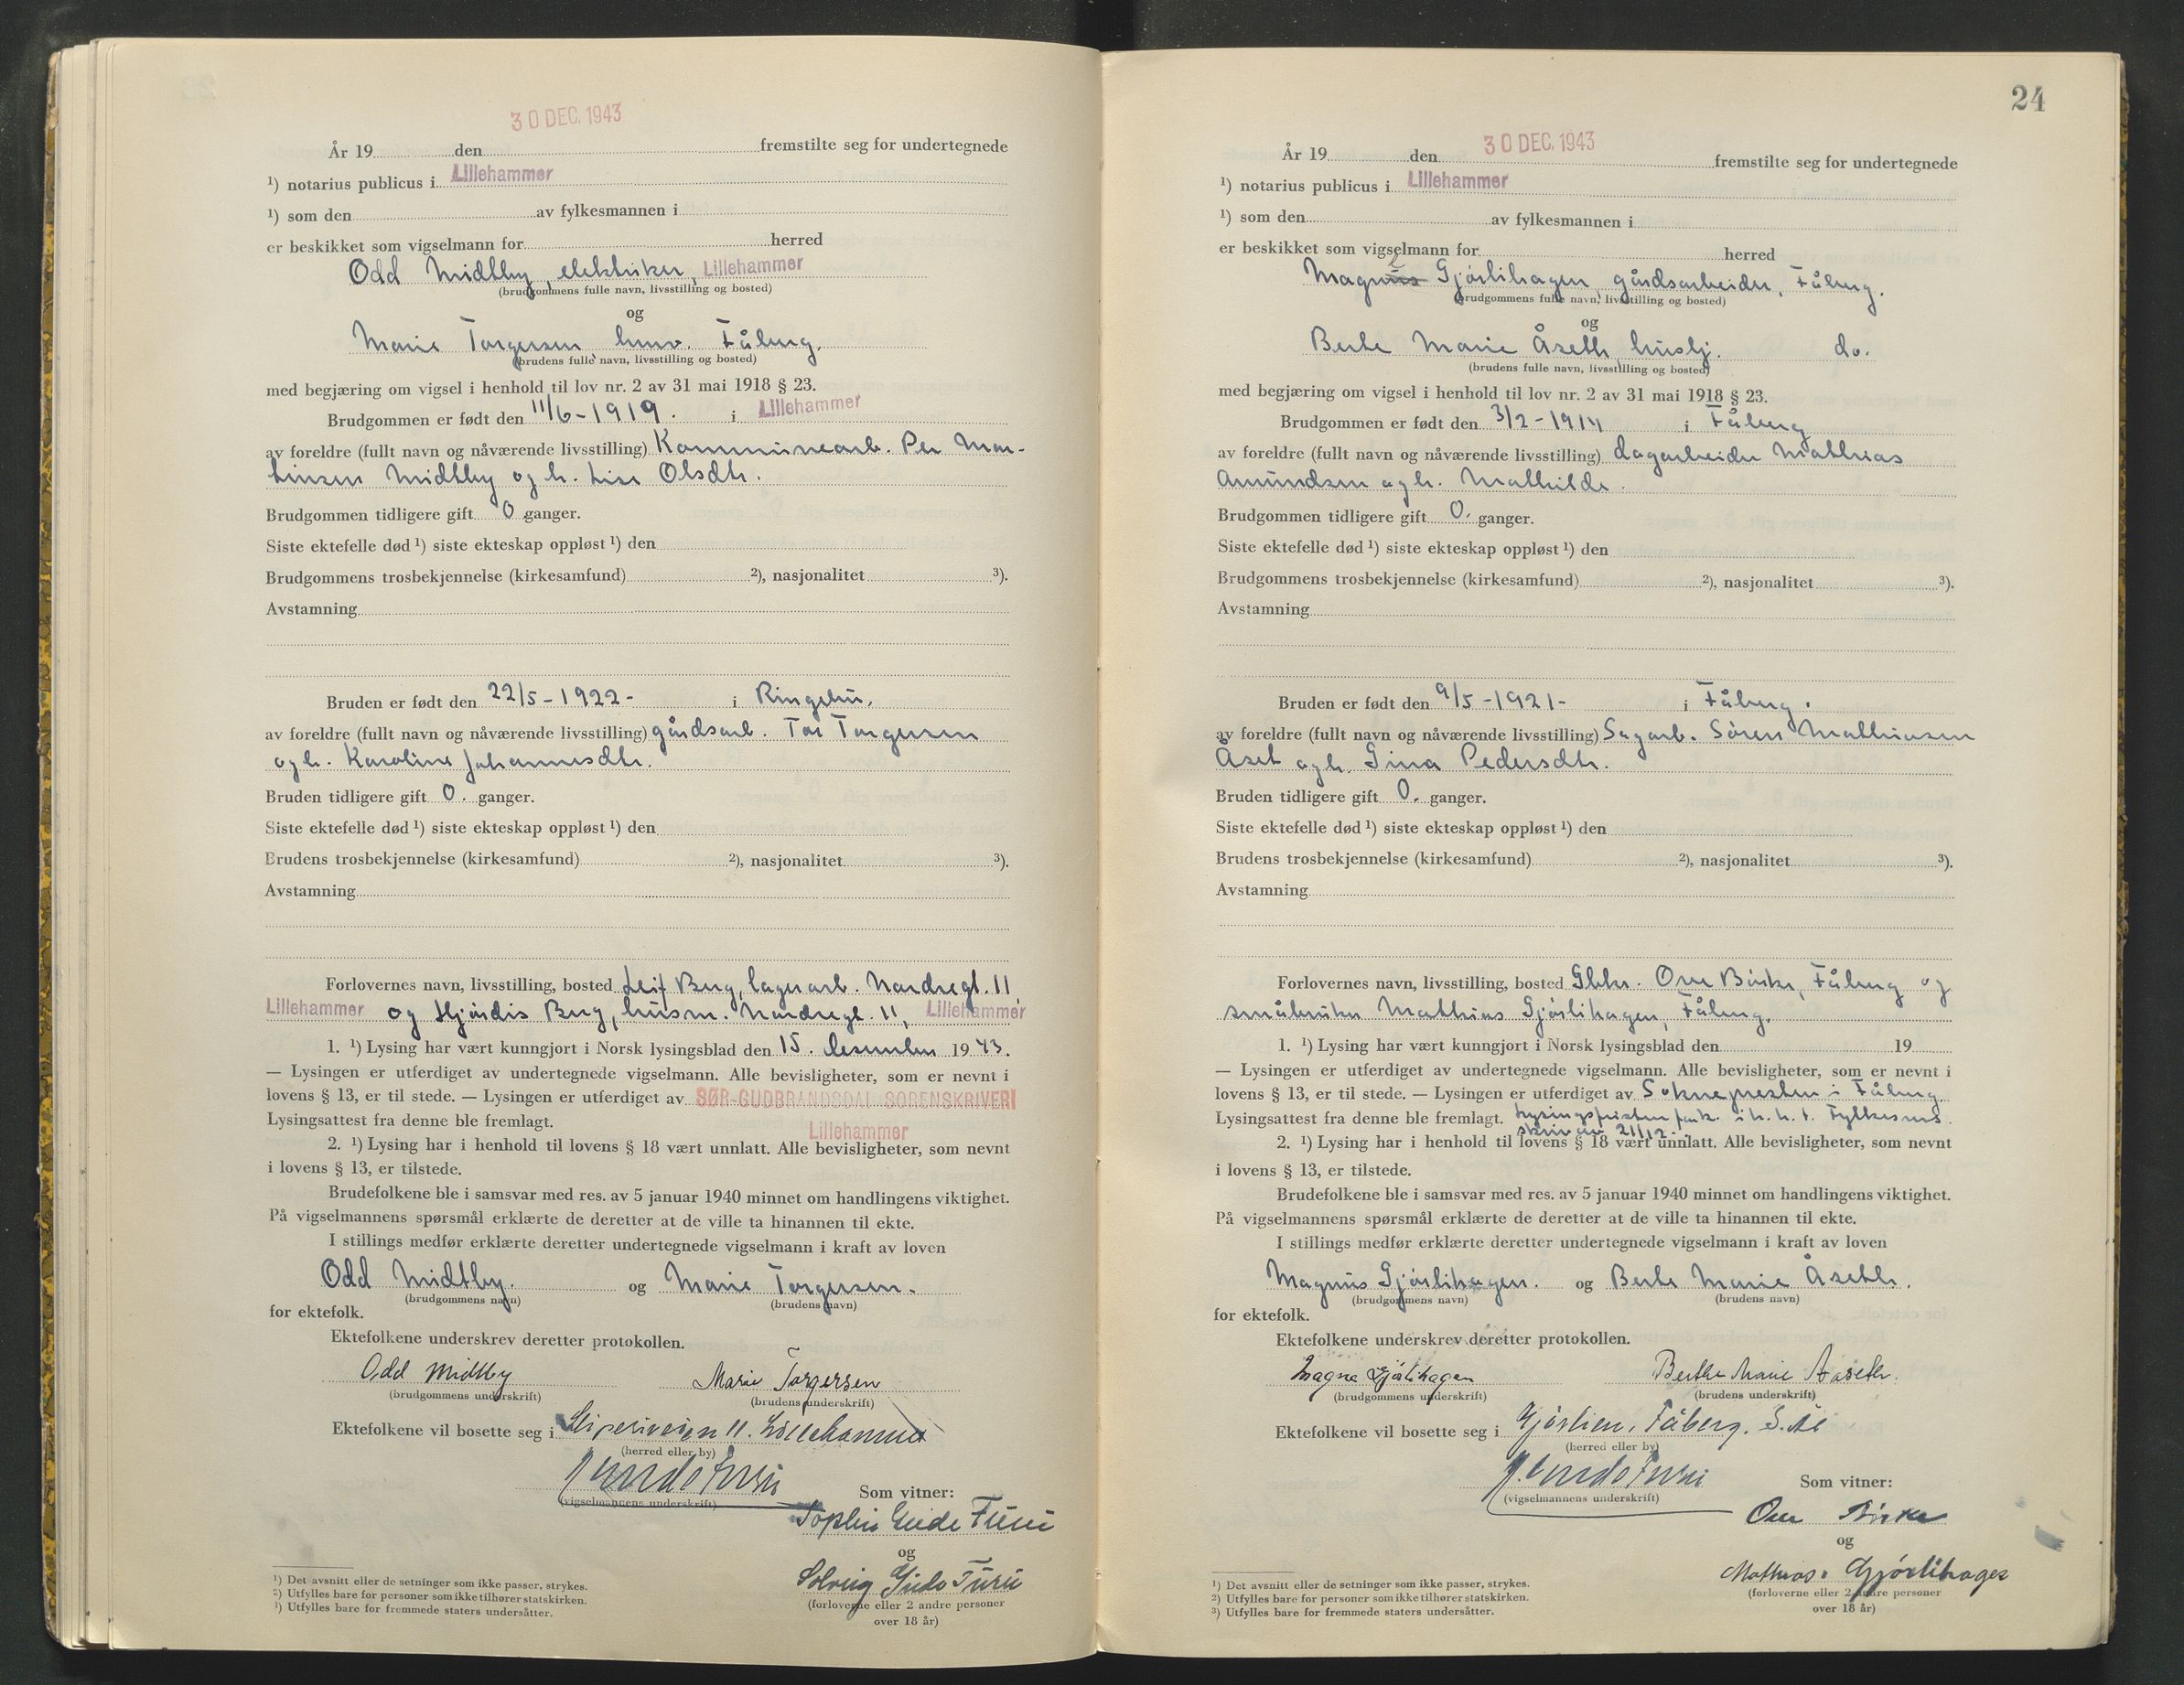 30 DEC. 1943
År 19 den fremstilte seg for undertegnede
¹) notarius publicus i Lillehammer
¹) som den av fylkesmannen i
er beskikket som vigselmann for herred
Odd Midtby, elektriker, Lillehammer
(brudgommens fulle navn, livsstilling og bosted)
og
Marie Torgersen hmv. Fåberg.
(brudens fulle navn, livsstilling og bosted)
med begjæring om vigsel i henhold til lov nr. 2 av 31 mai 1918 § 23.
Brudgommen er født den 11/6-1919. i Lillehammer
av foreldre (fullt navn og nåværende livsstilling) Kommunearb. Per Mar-
tinsen Midtby og h. Lise Olsdtr.
Brudgommen tidligere gift 0 ganger.
Siste ektefelle død ¹) siste ekteskap oppløst ¹) den
Brudgommens trosbekjennelse (kirkesamfund) ²), nasjonalitet ³).
Avstamning
Bruden er født den 22/5-1922- i Ringebu.
av foreldre (fullt navn og nåværende livsstilling) gårdsarb. Tor Torgersen
og h. Karoline Johannesdtr.
Bruden tidligere gift 0. ganger.
Siste ektefelle død ¹) siste ekteskap oppløst ¹) den
Brudens trosbekjennelse (kirkesamfund) ²), nasjonalitet ³).
Avstamning
Forlovernes navn, livsstilling, bosted Leif Berg, lagerarb. Nordregt. 11,
Lillehammer og Hjørdis Berg, husm. Nordregt. 11, Lillehammer
1. ¹) Lysing har vært kunngjort i Norsk lysingsblad den 15. desember 1943.
— Lysingen er utferdiget av undertegnede vigselmann. Alle bevisligheter, som er nevnt i
lovens § 13, er til stede. — Lysingen er utferdiget av SØR-GUDBRANDSDAL SORENSKRIVERI
Lysingsattest fra denne ble fremlagt. Lillehammer
2. ¹) Lysing har i henhold til lovens § 18 vært unnlatt. Alle bevisligheter, som nevnt
i lovens § 13, er tilstede.
Brudefolkene ble i samsvar med res. av 5 januar 1940 minnet om handlingens viktighet.
På vigselmannens spørsmål erklærte de deretter at de ville ta hinannen til ekte.
I stillings medfør erklærte deretter undertegnede vigselmann i kraft av loven
Odd Midtby. og Marie Torgersen.
(brudgommens navn) (brudens navn)
for ektefolk.
Ektefolkene underskrev deretter protokollen.
Odd Midtby Marie Torgersen
(brudgommens underskrift) (brudens underskrift)
Ektefolkene vil bosette seg i 11. Lillehammer
(herred eller by)
(vigselmannens underskrift) Som vitner:
Furu
og
Solveig Furu
(forloverne eller 2 andre personer
over 18 år)
¹) Det avsnitt eller de setninger som ikke passer, strykes.
²) Utfylles bare for personer som ikke tilhører statskirken.
³) Utfylles bare for fremmede staters undersåtter.
24
30 DEC. 1943
År 19 den fremstilte seg for undertegnede
¹) notarius publicus i Lillehammer
¹) som den av fylkesmannen i
er beskikket som vigselmann for herred
Magnus Gjørlihagen, gårdsarbeider, Fåberg.
(brudgommens fulle navn, livsstilling og bosted)
og
Berte Marie Åseth, hushj. do.
(brudens fulle navn, livsstilling og bosted)
med begjæring om vigsel i henhold til lov nr. 2 av 31 mai 1918 § 23.
Brudgommen er født den 3/2-1914 i Fåberg
av foreldre (fullt navn og nåværende livsstilling) dagarbeider Mathias
Amundsen og h. Mathilde.
Brudgommen tidligere gift 0. ganger.
Siste ektefelle død ¹) siste ekteskap oppløst ¹) den
Brudgommens trosbekjennelse (kirkesamfund) ²), nasjonalitet ³).
Avstamning
Bruden er født den 9/5-1921- i Fåberg.
av foreldre (fullt navn og nåværende livsstilling) Sagarb. Søren Mathiasen
Åset og h. Gina Pedersdtr.
Bruden tidligere gift 0. ganger.
Siste ektefelle død ¹) siste ekteskap oppløst ¹) den
Brudens trosbekjennelse (kirkesamfund) ²), nasjonalitet ³).
Avstamning
Forlovernes navn, livsstilling, bosted Gbkr. Ove Birke, Fåberg og
småbruker Mathias Gjørlihagen, Fåberg.
1. ¹) Lysing har vært kunngjort i Norsk lysingsblad den 19
— Lysingen er utferdiget av undertegnede vigselmann. Alle bevisligheter, som er nevnt i
lovens § 13, er til stede. — Lysingen er utferdiget av Soknepresten i Fåberg
Lysingsattest fra denne ble fremlagt. Lysingsfristen fork. i h. h. t. Fylkesms.
skriv av 21/12.
2. ¹) Lysing har i henhold til lovens § 18 vært unnlatt. Alle bevisligheter, som nevnt
i lovens § 13, er tilstede.
Brudefolkene ble i samsvar med res. av 5 januar 1940 minnet om handlingens viktighet.
På vigselmannens spørsmål erklærte de deretter at de ville ta hinannen til ekte.
I stillings medfør erklærte deretter undertegnede vigselmann i kraft av loven
Magnus Gjørlihagen. og Berte Marie Åseth.
(brudgommens navn) (brudens navn)
for ektefolk.
Ektefolkene underskrev deretter protokollen.
Magne Gjørlihagen Berthe Marie Aaseth.
(brudgommens underskrift) (brudens underskrift)
Ektefolkene vil bosette seg i Gjørlien, Fåberg.
(herred eller by)
(vigselmannens underskrift) Som vitner:
Ove Birke
og
Mathias Gjørlihagen
(forloverne eller 2 andre personer
over 18 år)
¹) Det avsnitt eller de setninger som ikke passer, strykes.
²) Utfylles bare for personer som ikke tilhører statskirken.
³) Utfylles bare for fremmede staters undersåtter.